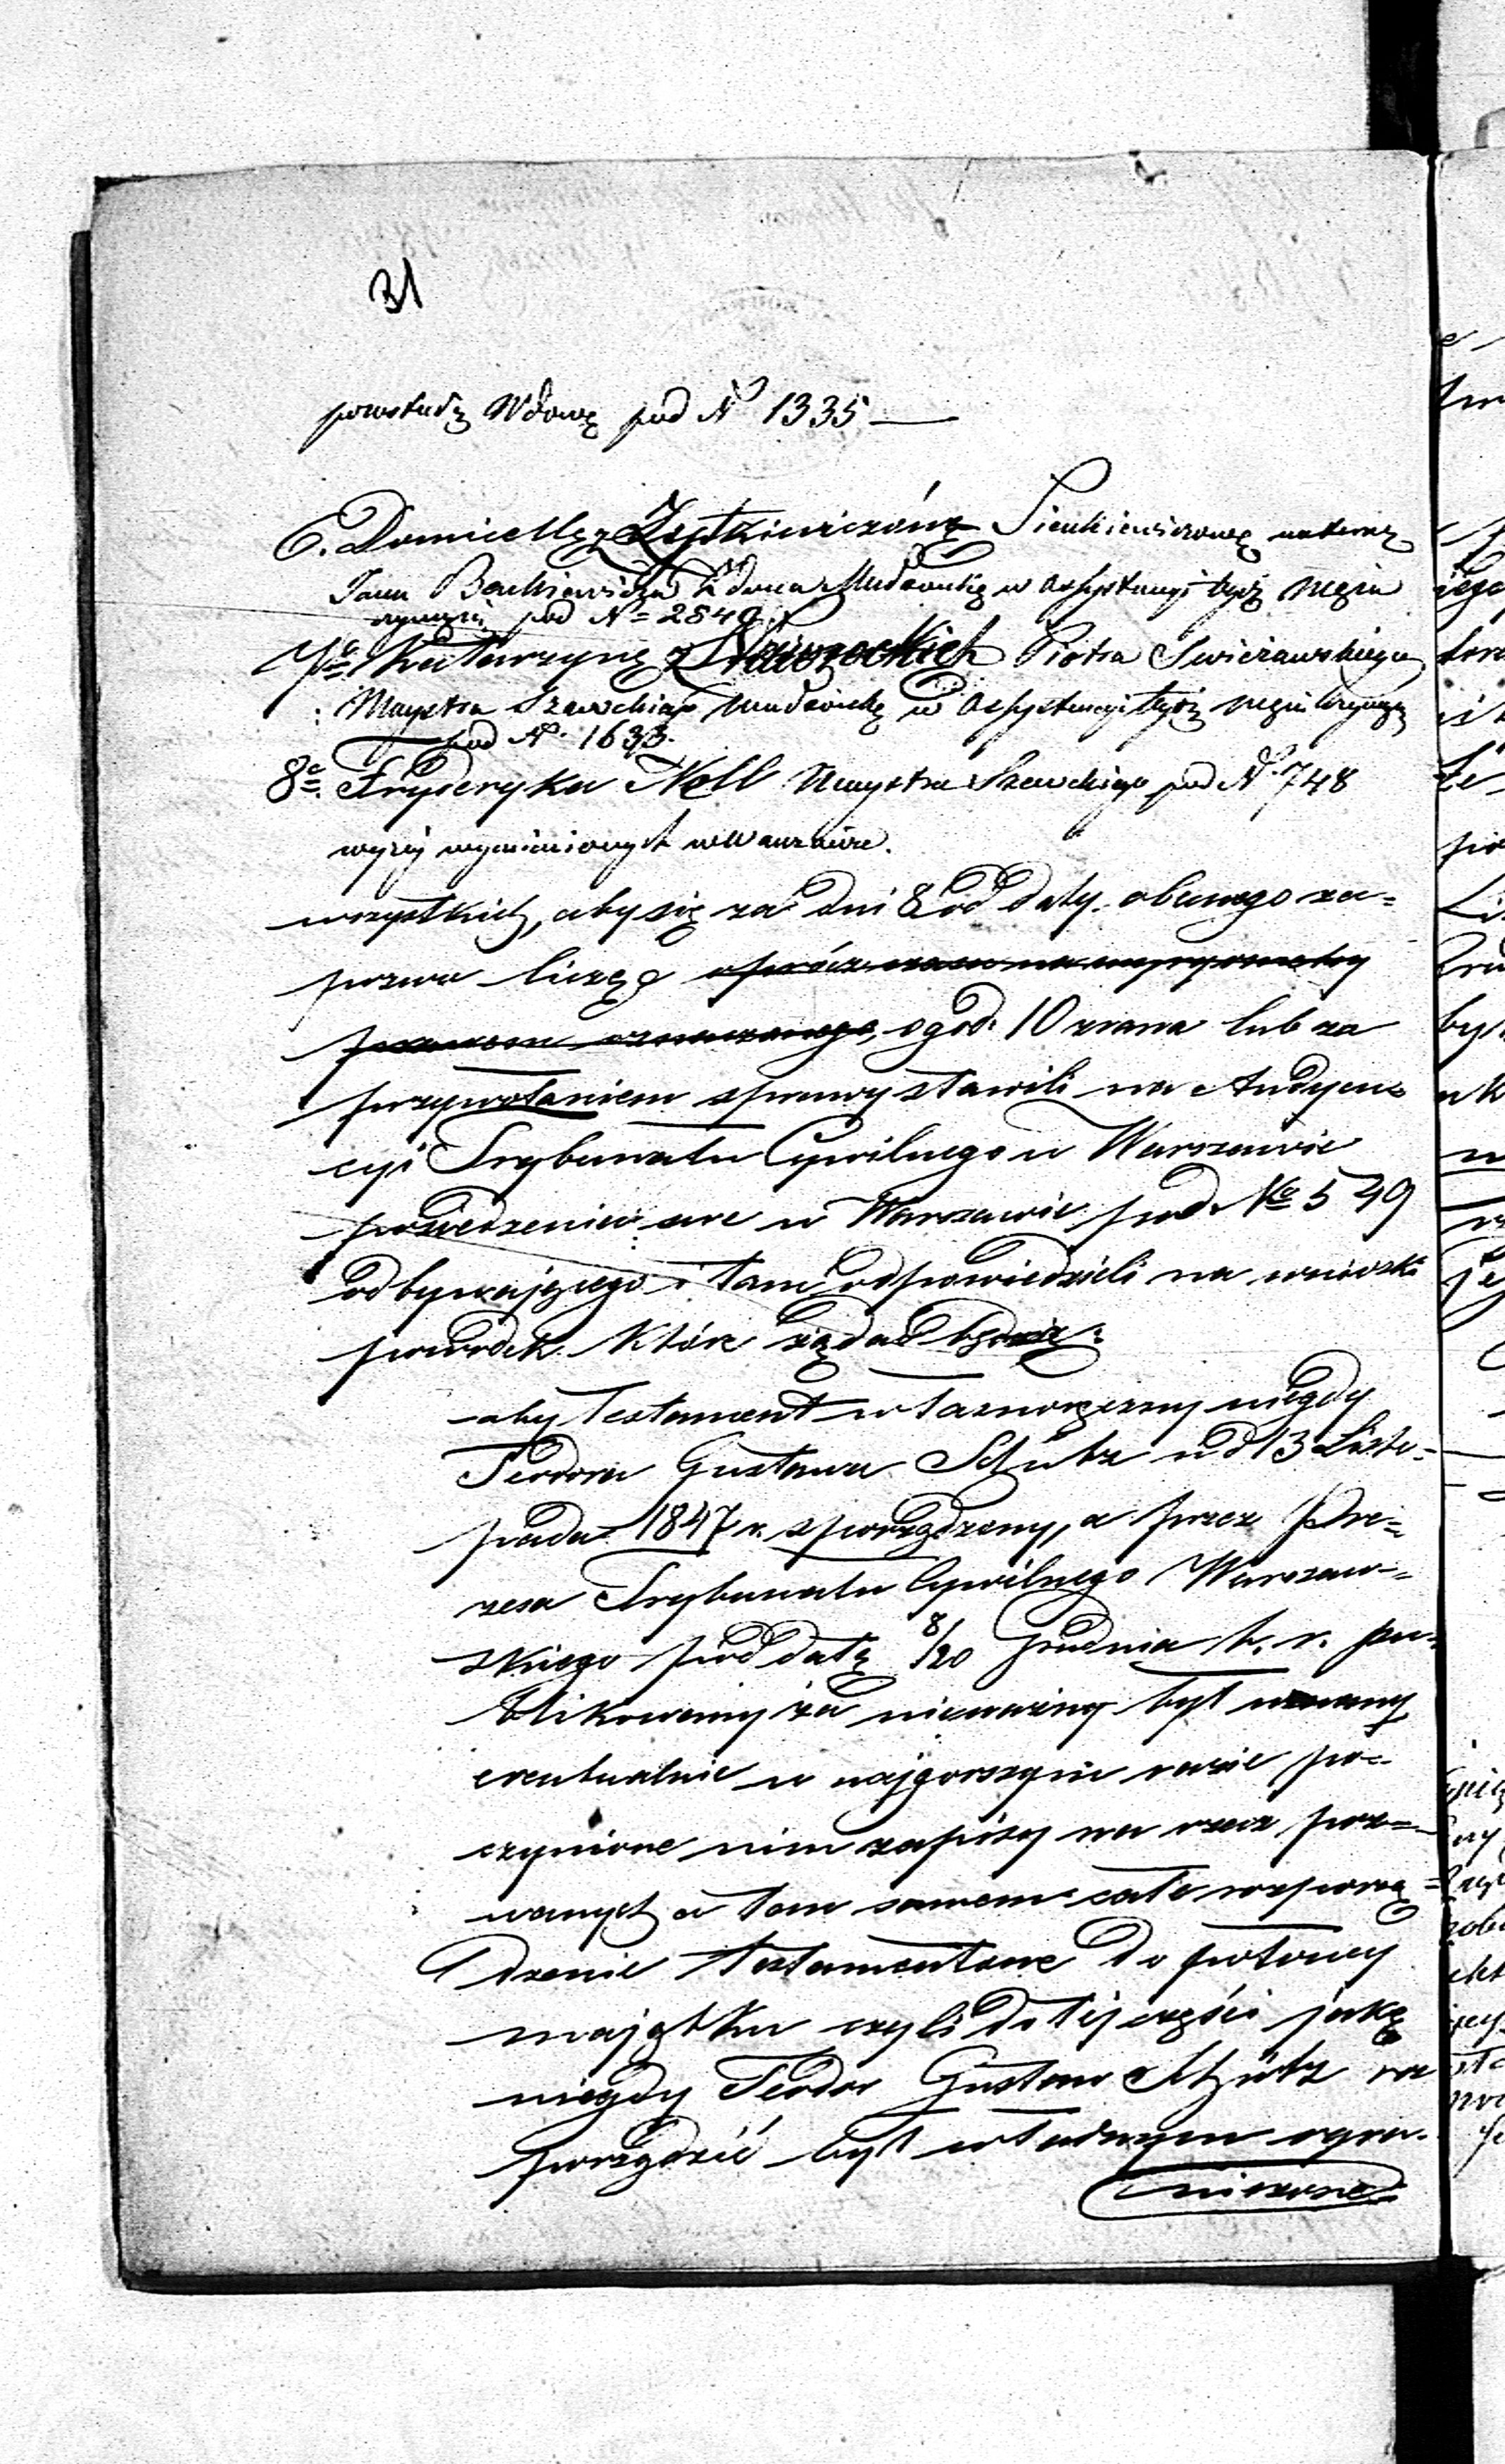 31
pozostałą Wdowę pod Nº 1335 —
6. Domicellę z Zyłkiewiczów Sienkiewiczową a teraz
Jana małżonkę w assystencyi tegoż męża
czyniącą pod Nº 2840
7º Katarzynę z Piotra Swierzawskiego
Maystra Szewckiego małżonkę w assystencyi tegoż męża czyniącą
pod Nº 1633.
8º. Fryderyka Noll Maystra Szewckiego pod Nº 748
wyżej wymienionych w Warszawie.
wszystkich, aby się za dni 8 od daty obecnego za=
pozwu licząc
o god. 10 z rana lub za
przywołaniem sprawy stawili na Audyen=
cyi Trybunału Cywilnego w Warszawie
posiedzenia swe w Warszawie pod Nº 549
odbywającego i tam odpowiedzieli na wnioski
powodek które żądać będą:
aby testament własnoręczny niegdy
Teodora Gustawa Schütz w d 13 Listo=
pada 1847 r. sporządzony, a przez Pre=
zesa Trybunału Cywilnego Warszaw=
skiego pod datą 8/20 Grudnia t. r. pu=
blikowany za nieważny był uznany
ewentualnie w najgorszym razie po=
czynione nim zapisy na rzecz poz=
wanych a tem samem całe rozporzą=
dzenie testamentowe do połowy
majątku czyli do tej części jaką
niegdy Teodor Gustaw Schütz roz
porządzić był władnym ogra=
niczone